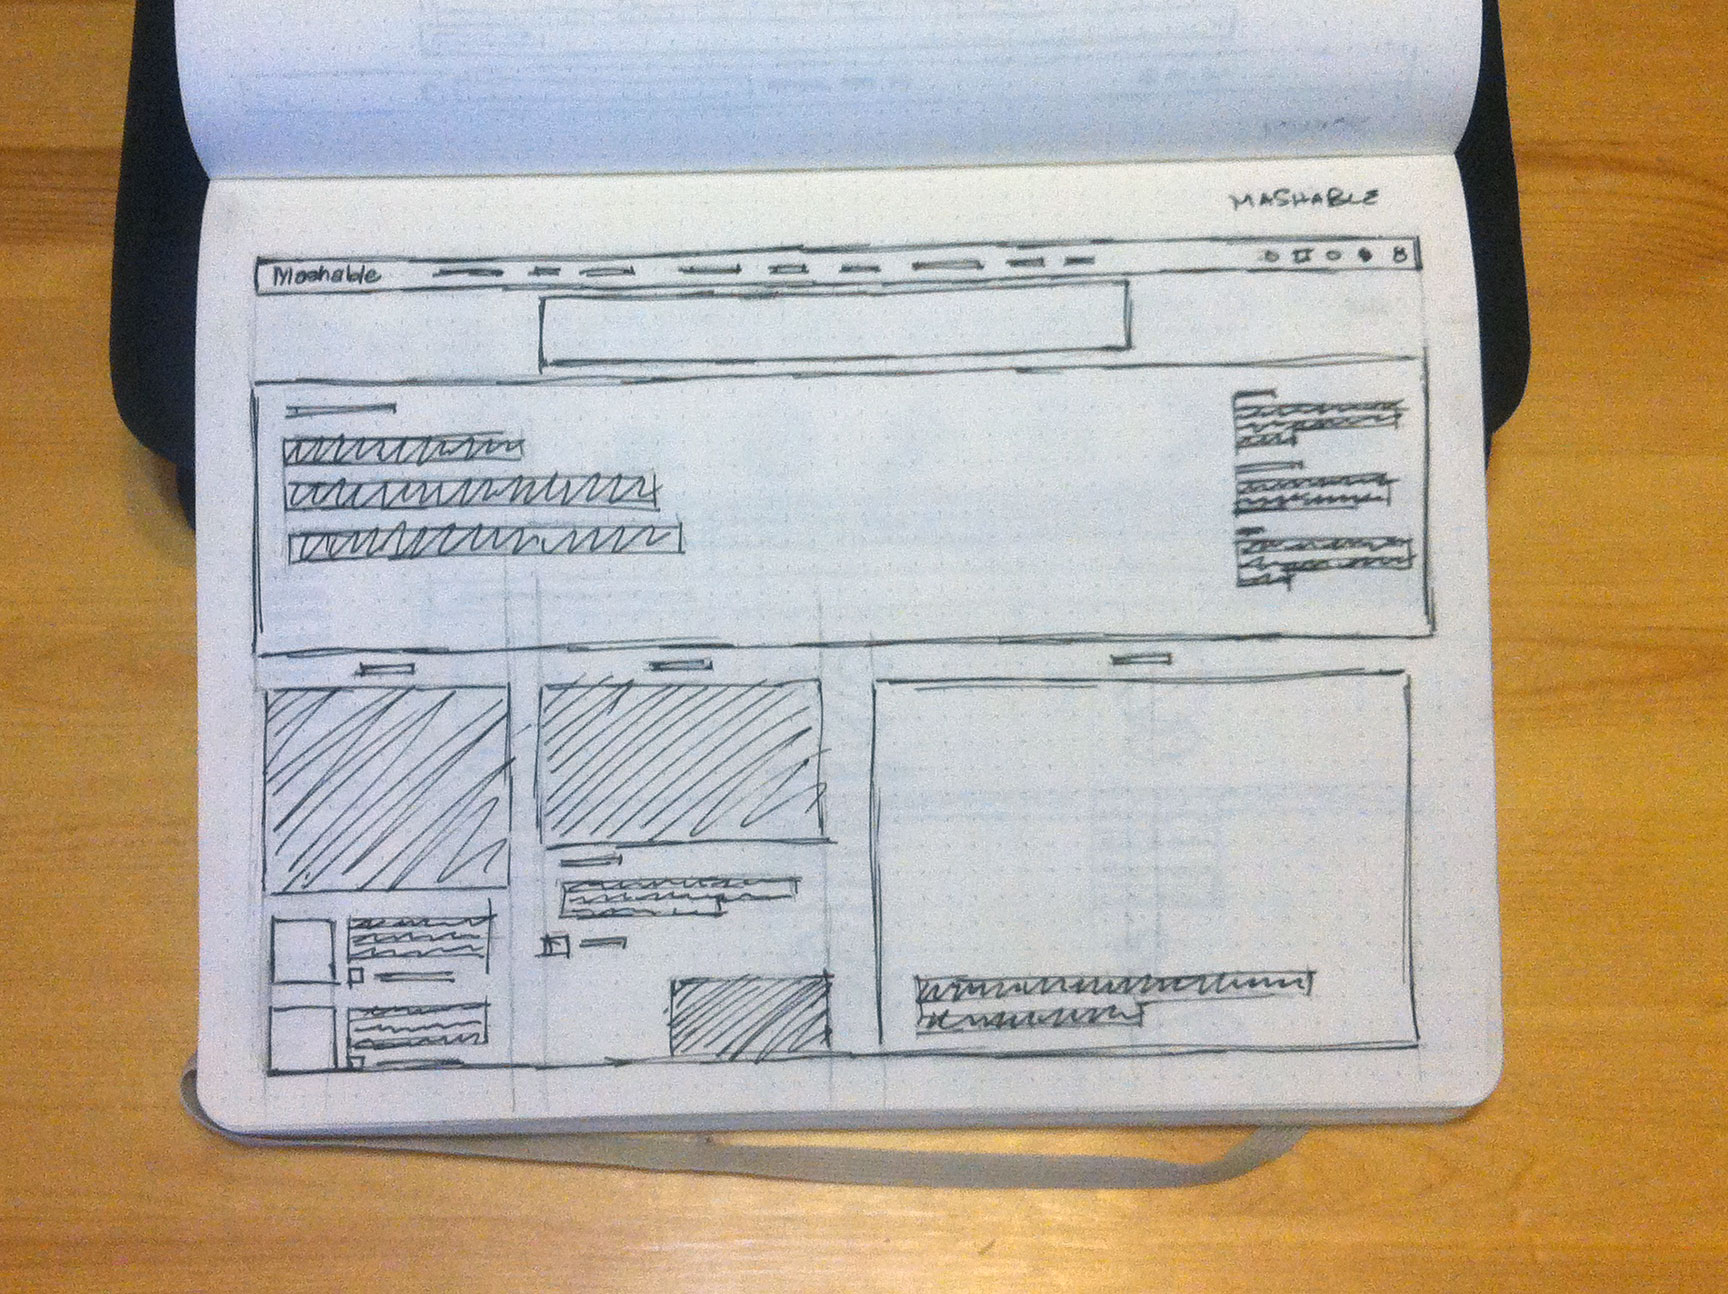 MASHABLE
Mashable